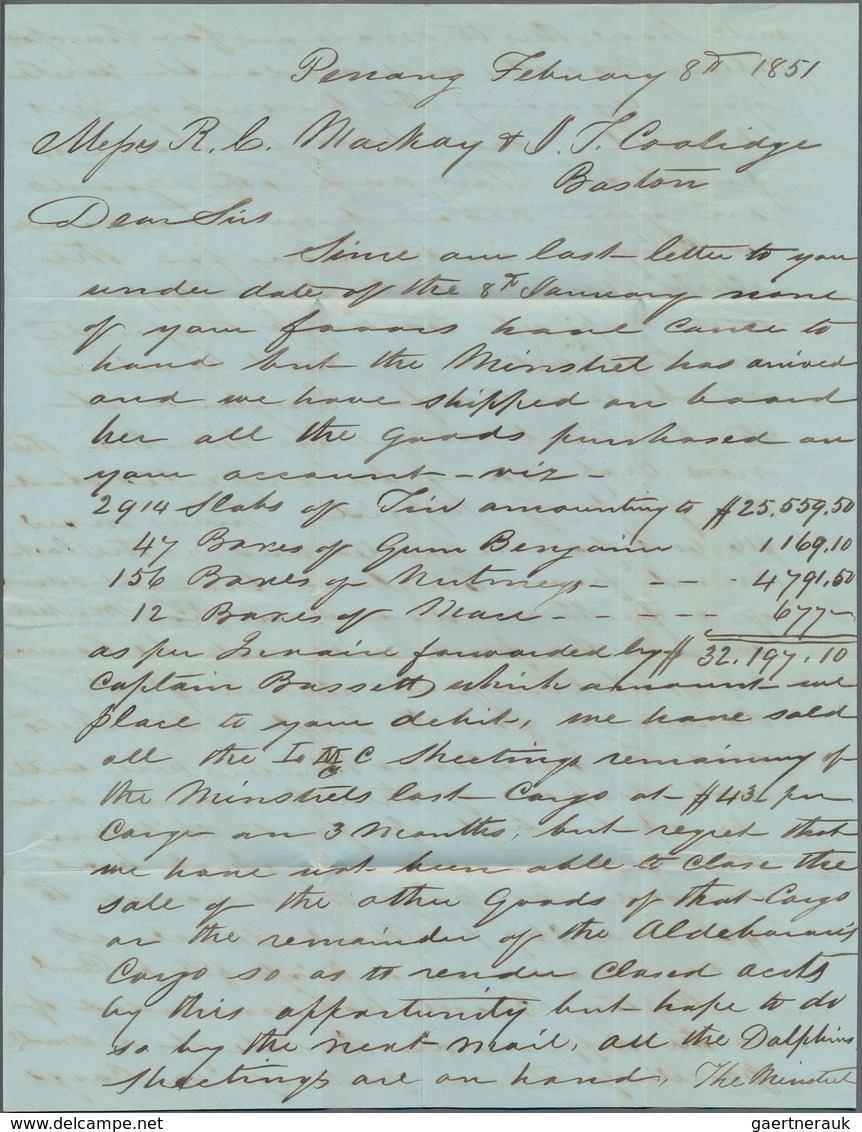 Penang February 8th 1851
Messrs R. C. Mackay & J. T. Coolidge
Boston
Dear Sirs
Since our last letter to you
under date of the 8th January none
of your favors have come to
hand but the Minstrel has arrived
and we have shipped on board
her all the goods purchased on
your account - viz -
2914 Slabs of Tin amounting to $25.559.50
47 Boxes of Gum Benjamin 1169.10
156 Boxes of Nutmegs - - - - 4791.50
12 Boxes of Mace - - - - - 677 -
as per Invoice forwarded by $ 32.197.10
Captain Bassett which amount we
place to your debit, we have sold
all the C Sheetings remaining of
the Minstrels last Cargo at $43 per
on 3 Months, but regret that
we have not been able to close the
sale of the other Goods of that Cargo
or the remainder of the Aldebaran's
Cargo so as to render closed accts
by this opportunity but hope to do
so by the next mail, all the Dolphins
Sheetings are on hand, The Minstrel
gaertnerauk